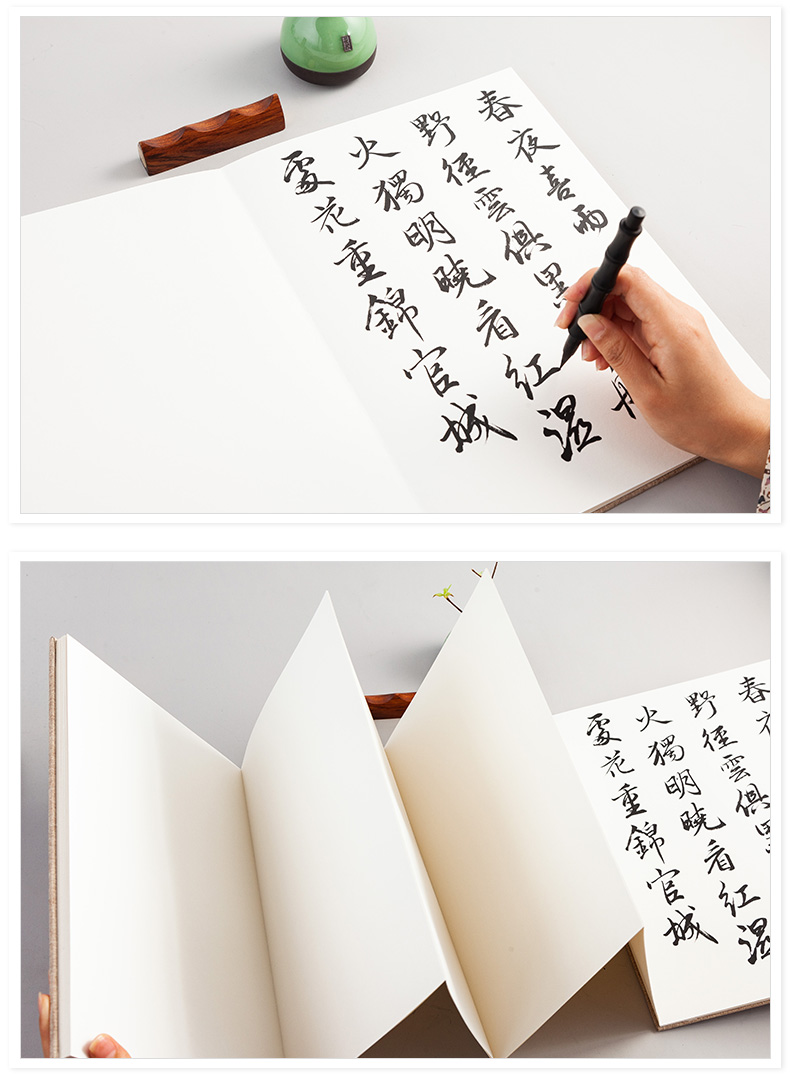 春夜喜雨
野徑雲俱黑
火獨明曉看紅濕
處花重錦官城
春夜
野徑雲俱黑
火獨明曉看紅濕
處花重錦官城